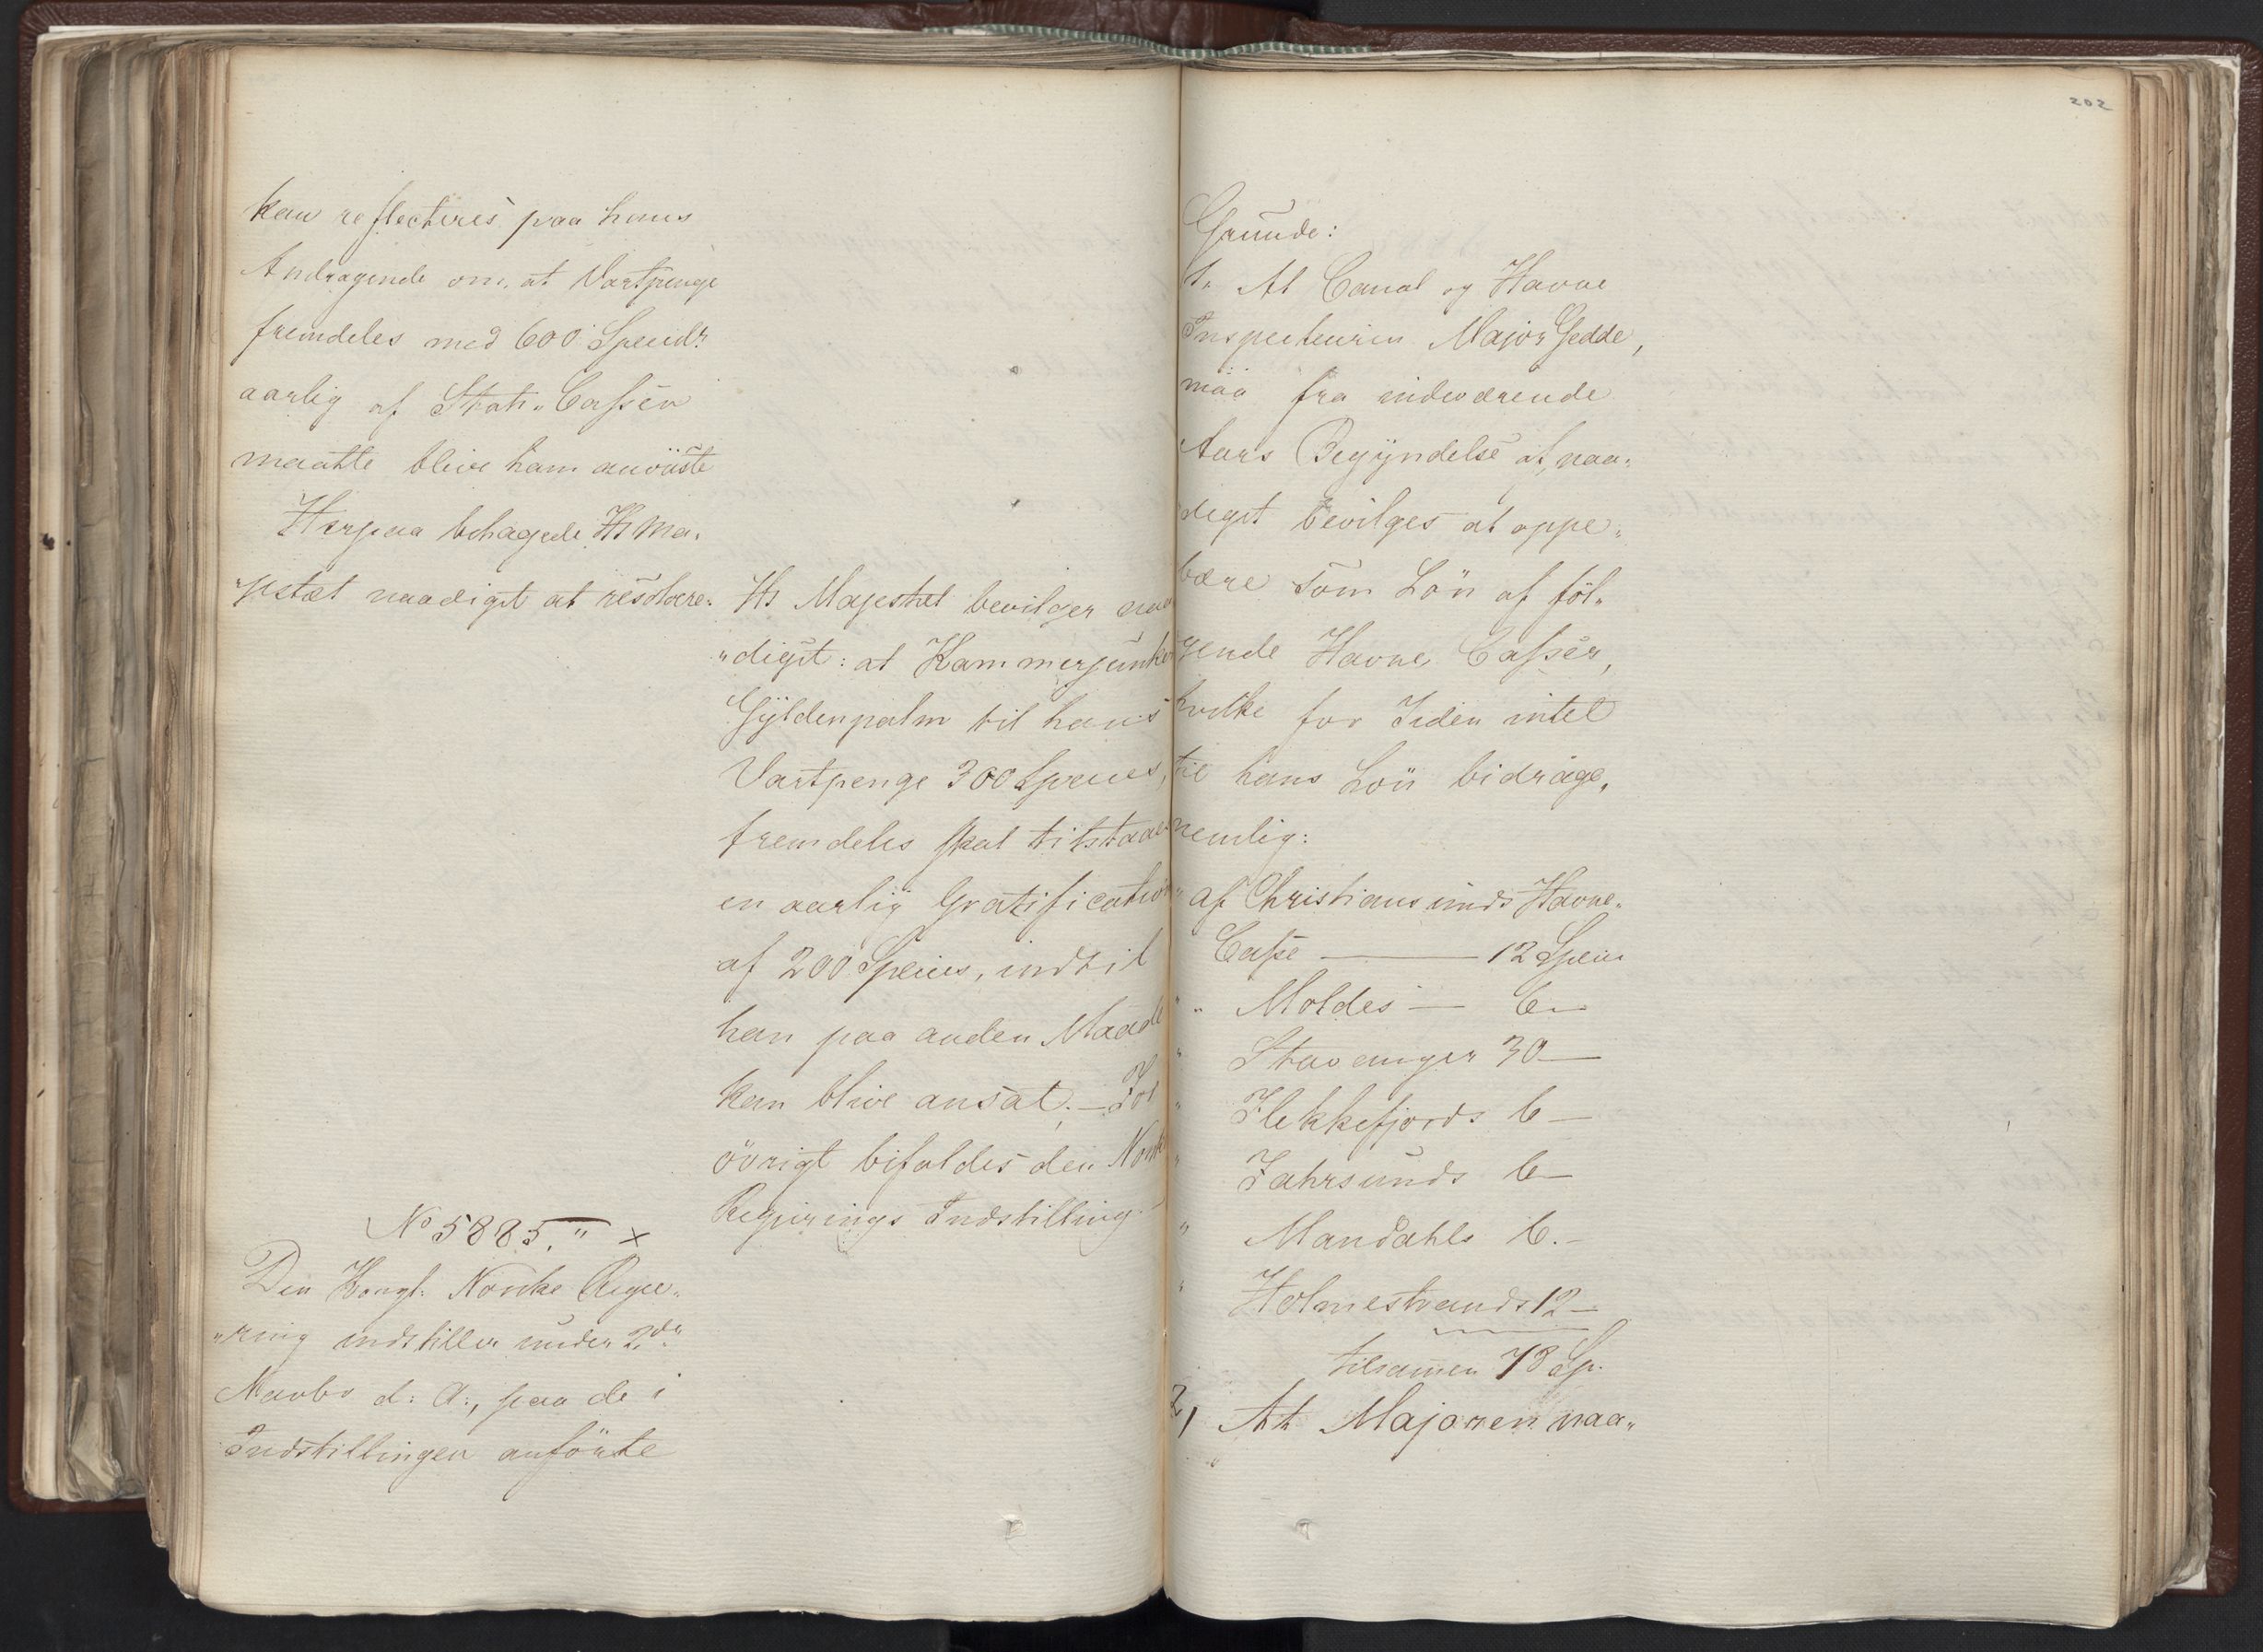 kan reflecteres paa hans
Andragende om, at Vartpenge
fremdeles med 600 Specdr
aarlig af Stats„Cassen
maatte blive ham anviiste
Herpaa behagede Hs Ma„
„jestæt naadigst at resolvere:
Hs Majestæt bevilger naa
„digst: at Kammerjunker
Gÿldenpalm til hans
Vartpenge 300 Species,
fremdeles skal tilstaaes
en aarlig Gratification
af 200 Species, indtil
han paa anden Maade
kan blive ansat; – For
övrigt bifaldes den Norske
Regjerings Indstilling.
No 5885." ×
Den Kongl: Norske Regje„
„ring indstiller under 2den
Marts d: A:, paa de i
Indstillingen anförte
202
Grunde:
1. At Canal og Havne
Inspecteuren Major Gedde,
maa fra indeværende
Aars Begÿndelse af, naa„
digst bevilges at oppe„
bære som Lön af föl„
gende Havne Casser,
hvilke for Tiden intet
til hans Lön bidrage,
nemlig:
" af Christiansunds Havne„
Casse — 12 Specier
" " Moldes — 6 —
" Stavanger 30 —
" Flekkefjords 6 —
" Fahrsunds 6 —
" Mandahls 6. –
" Holmestrands 12 —
tilsammen 78 Sp.
2, At Majoren naa„